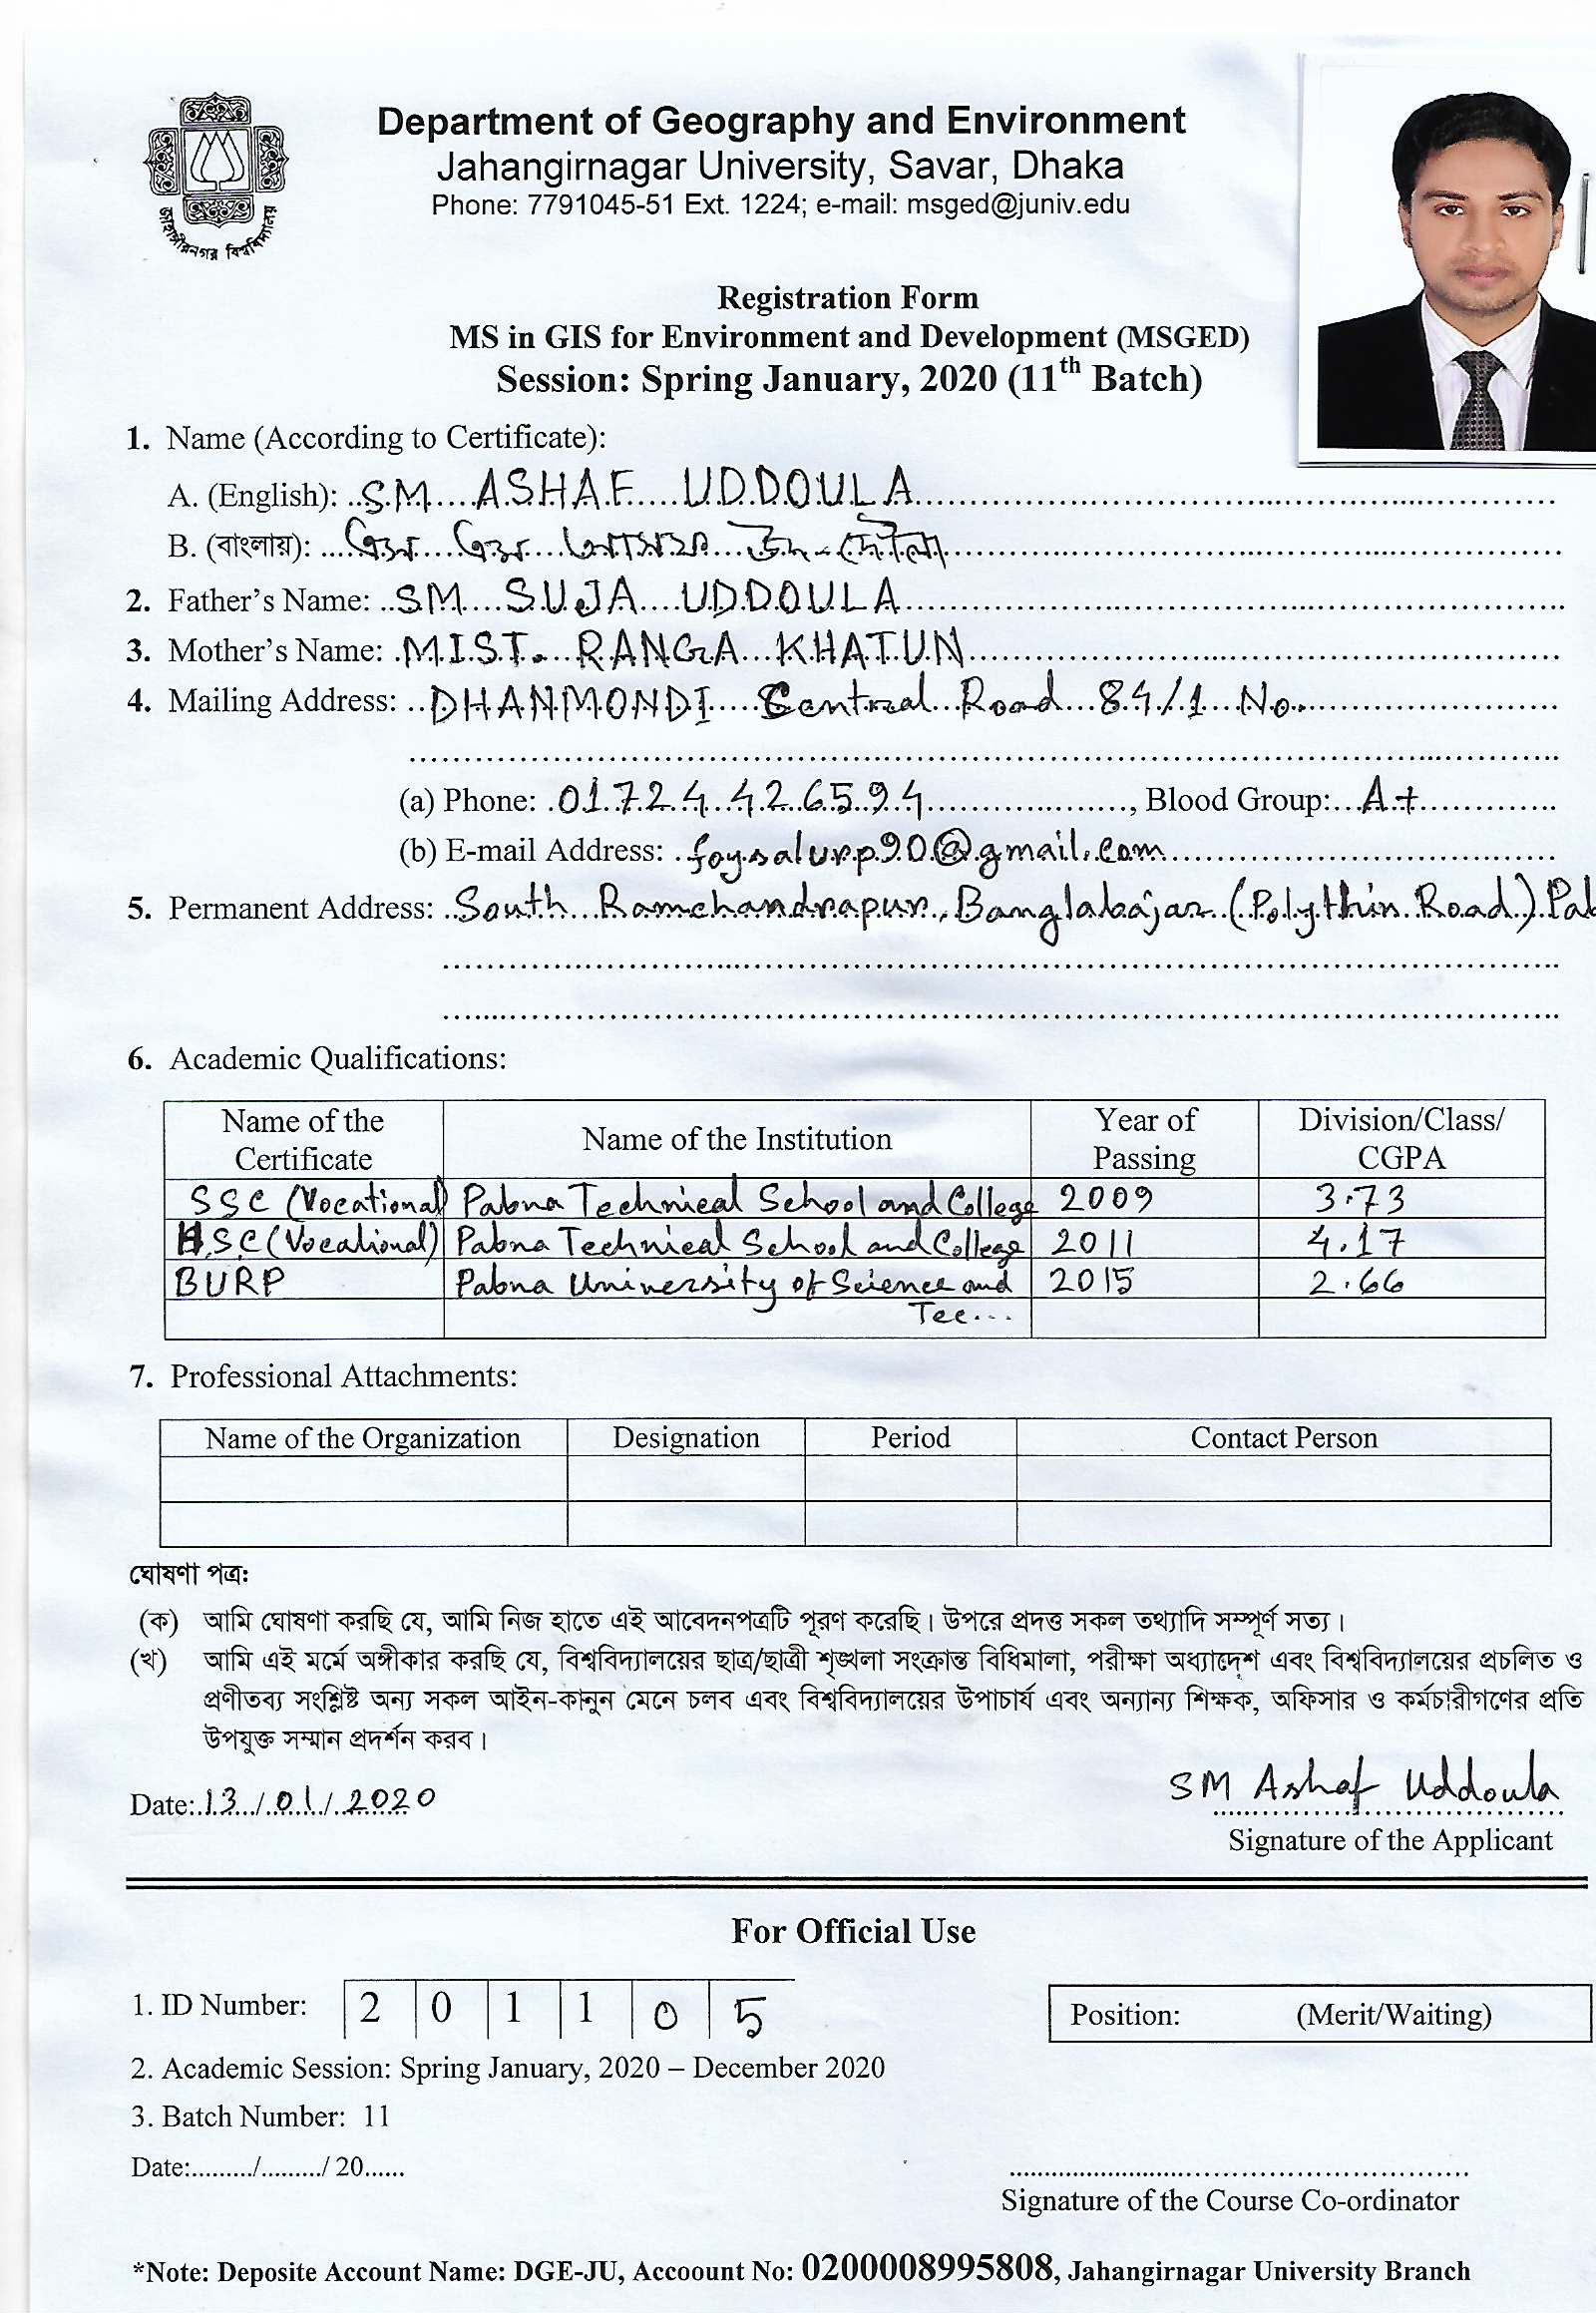 জাহাঙ্গীরনগর বিশ্ববিদ্যালয়
Department of Geography and Environment
Jahangirnagar University, Savar, Dhaka
Phone: 7791045-51 Ext. 1224; e-mail: msged@juniv.edu
Registration Form
MS in GIS for Environment and Development (MSGED)
Session: Spring January, 2020 (11th Batch)
1. Name (According to Certificate):
A. (English): S.M ASHAF UDDOULA
B. (বাংলায়): এস এম আসাফ উদ-দৌলা
2. Father's Name: SM SUJA UDDOULA
3. Mother's Name: MIST. RANGA KHATUN
4. Mailing Address: DHANMONDI Central Road 84/1 No.
(a) Phone: 01724426594, Blood Group: A+
(b) E-mail Address: foysalurp90@gmail.com
5. Permanent Address: South Ramchandrapur, Banglabajar (Polythin Road) Pab
6. Academic Qualifications:
Name of the Certificate Name of the Institution Year of Passing Division/Class/ CGPA
SSC (Vocational) Pabna Technical School and College 2009 3.73
HSC (Vocational) Pabna Technical School and College 2011 4.17
BURP Pabna University of Science and 2015 2.66
Tec...
7. Professional Attachments:
Name of the Organization Designation Period Contact Person
ঘোষণা পত্র:
(ক) আমি ঘোষণা করছি যে, আমি নিজ হাতে এই আবেদনপত্রটি পূরণ করেছি। উপরে প্রদত্ত সকল তথ্যাদি সম্পূর্ণ সত্য।
(খ) আমি এই মর্মে অঙ্গীকার করছি যে, বিশ্ববিদ্যালয়ের ছাত্র/ছাত্রী শৃঙ্খলা সংক্রান্ত বিধিমালা, পরীক্ষা অধ্যাদেশ এবং বিশ্ববিদ্যালয়ের প্রচলিত ও
প্রণীতব্য সংশ্লিষ্ট অন্য সকল আইন-কানুন মেনে চলব এবং বিশ্ববিদ্যালয়ের উপাচার্য এবং অন্যান্য শিক্ষক, অফিসার ও কর্মচারীগণের প্রতি
উপযুক্ত সম্মান প্রদর্শন করব।
Date: 13/01/2020
SM Ashaf Uddoula
Signature of the Applicant
For Official Use
1. ID Number: 2 0 1 1 0 5
Position: (Merit/Waiting)
2. Academic Session: Spring January, 2020 – December 2020
3. Batch Number: 11
Date:........./........./ 20......
Signature of the Course Co-ordinator
*Note: Deposite Account Name: DGE-JU, Accoount No: 0200008995808, Jahangirnagar University Branch